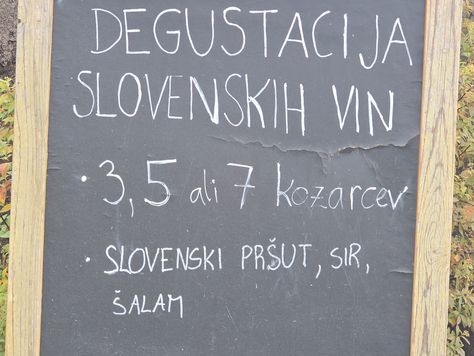 DEGUSTACIJA
SLOVENSKIH VIN
• 3, 5 ali 7 kozarcev
• SLOVENSKI PRŠUT, SIR,
ŠALAM